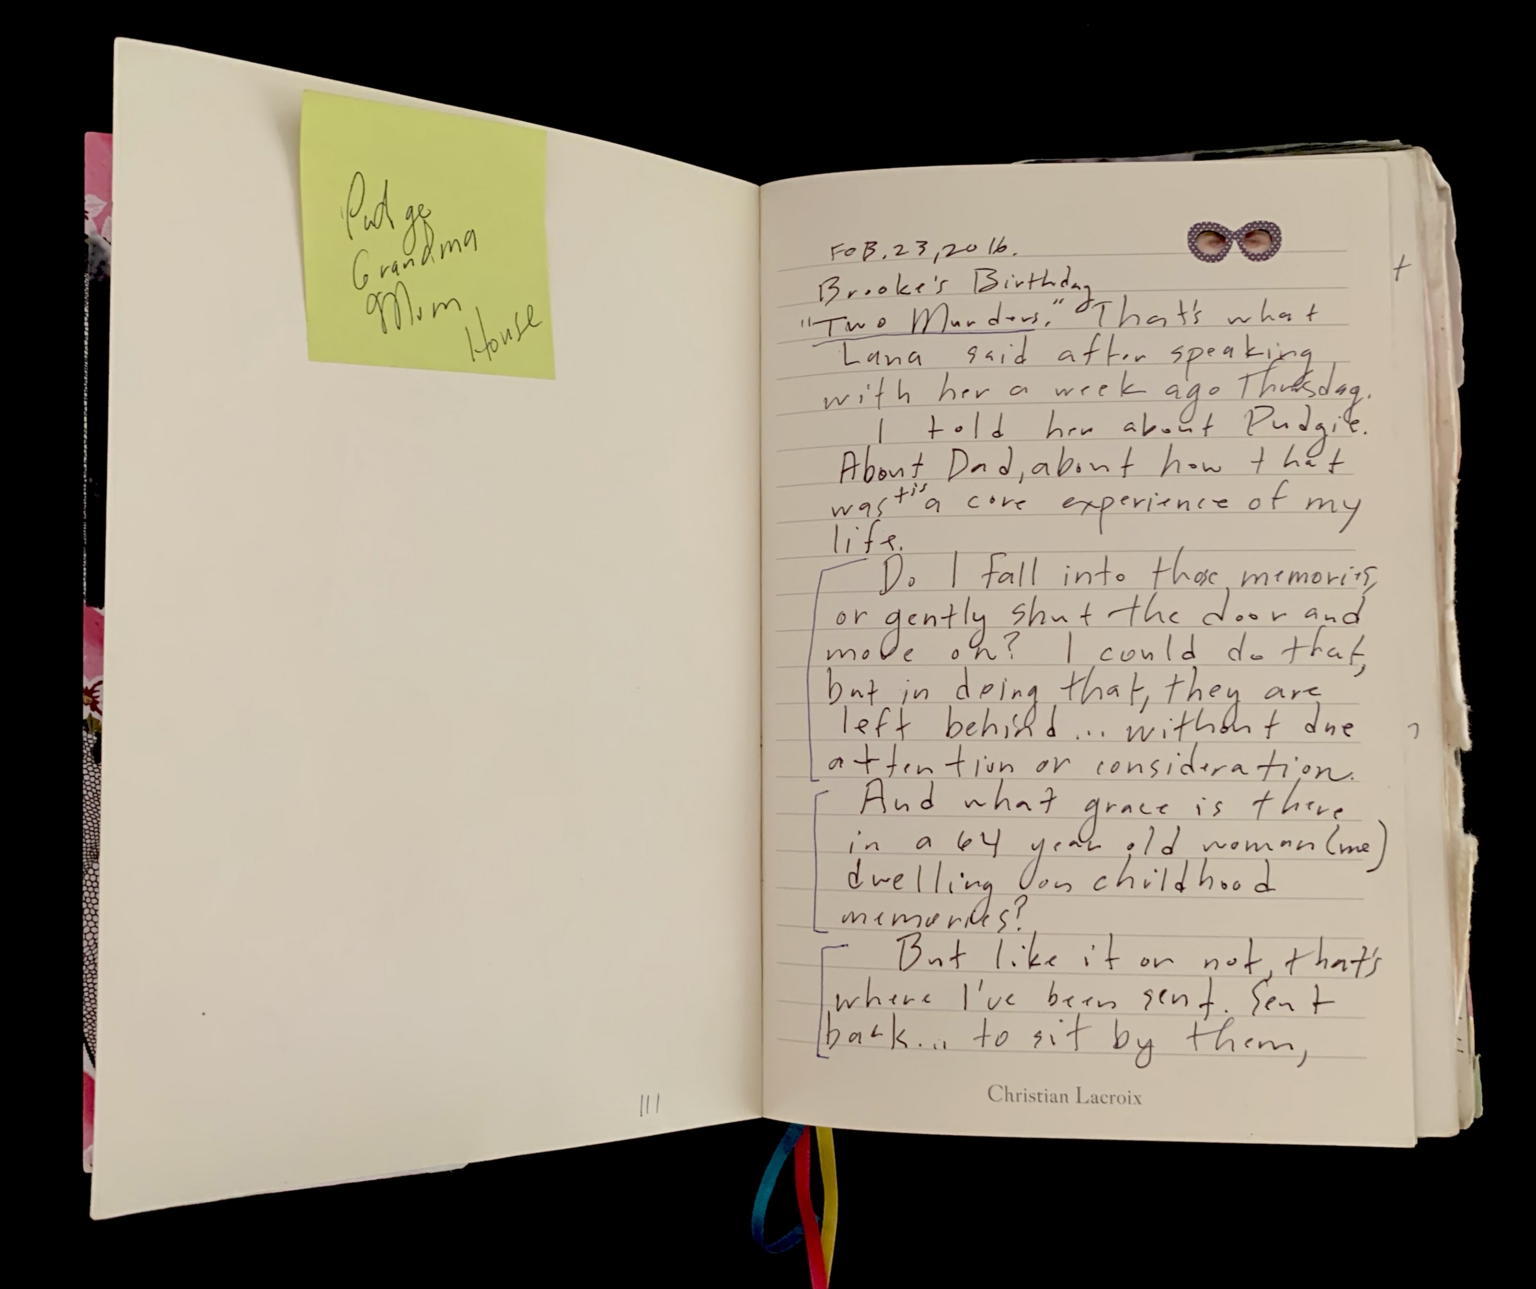 Pudge
Grandma
Mum
House
111
FEB. 23, 2016.
Brooke's Birthday
"Two Murders." That's what
Lana said after speaking
with her a week ago Thursday.
I told her about Pudgie.
About Dad, about how that
was + is a core experience of my
life.
Do I fall into those memories,
or gently shut the door and
move on? I could do that,
but in doing that, they are
left behind... without due
attention or consideration.
And what grace is there
in a 64 year old woman (me)
dwelling on childhood
memories?
But like it or not, that's
where I've been sent. Sent
back... to sit by them,
Christian Lacroix